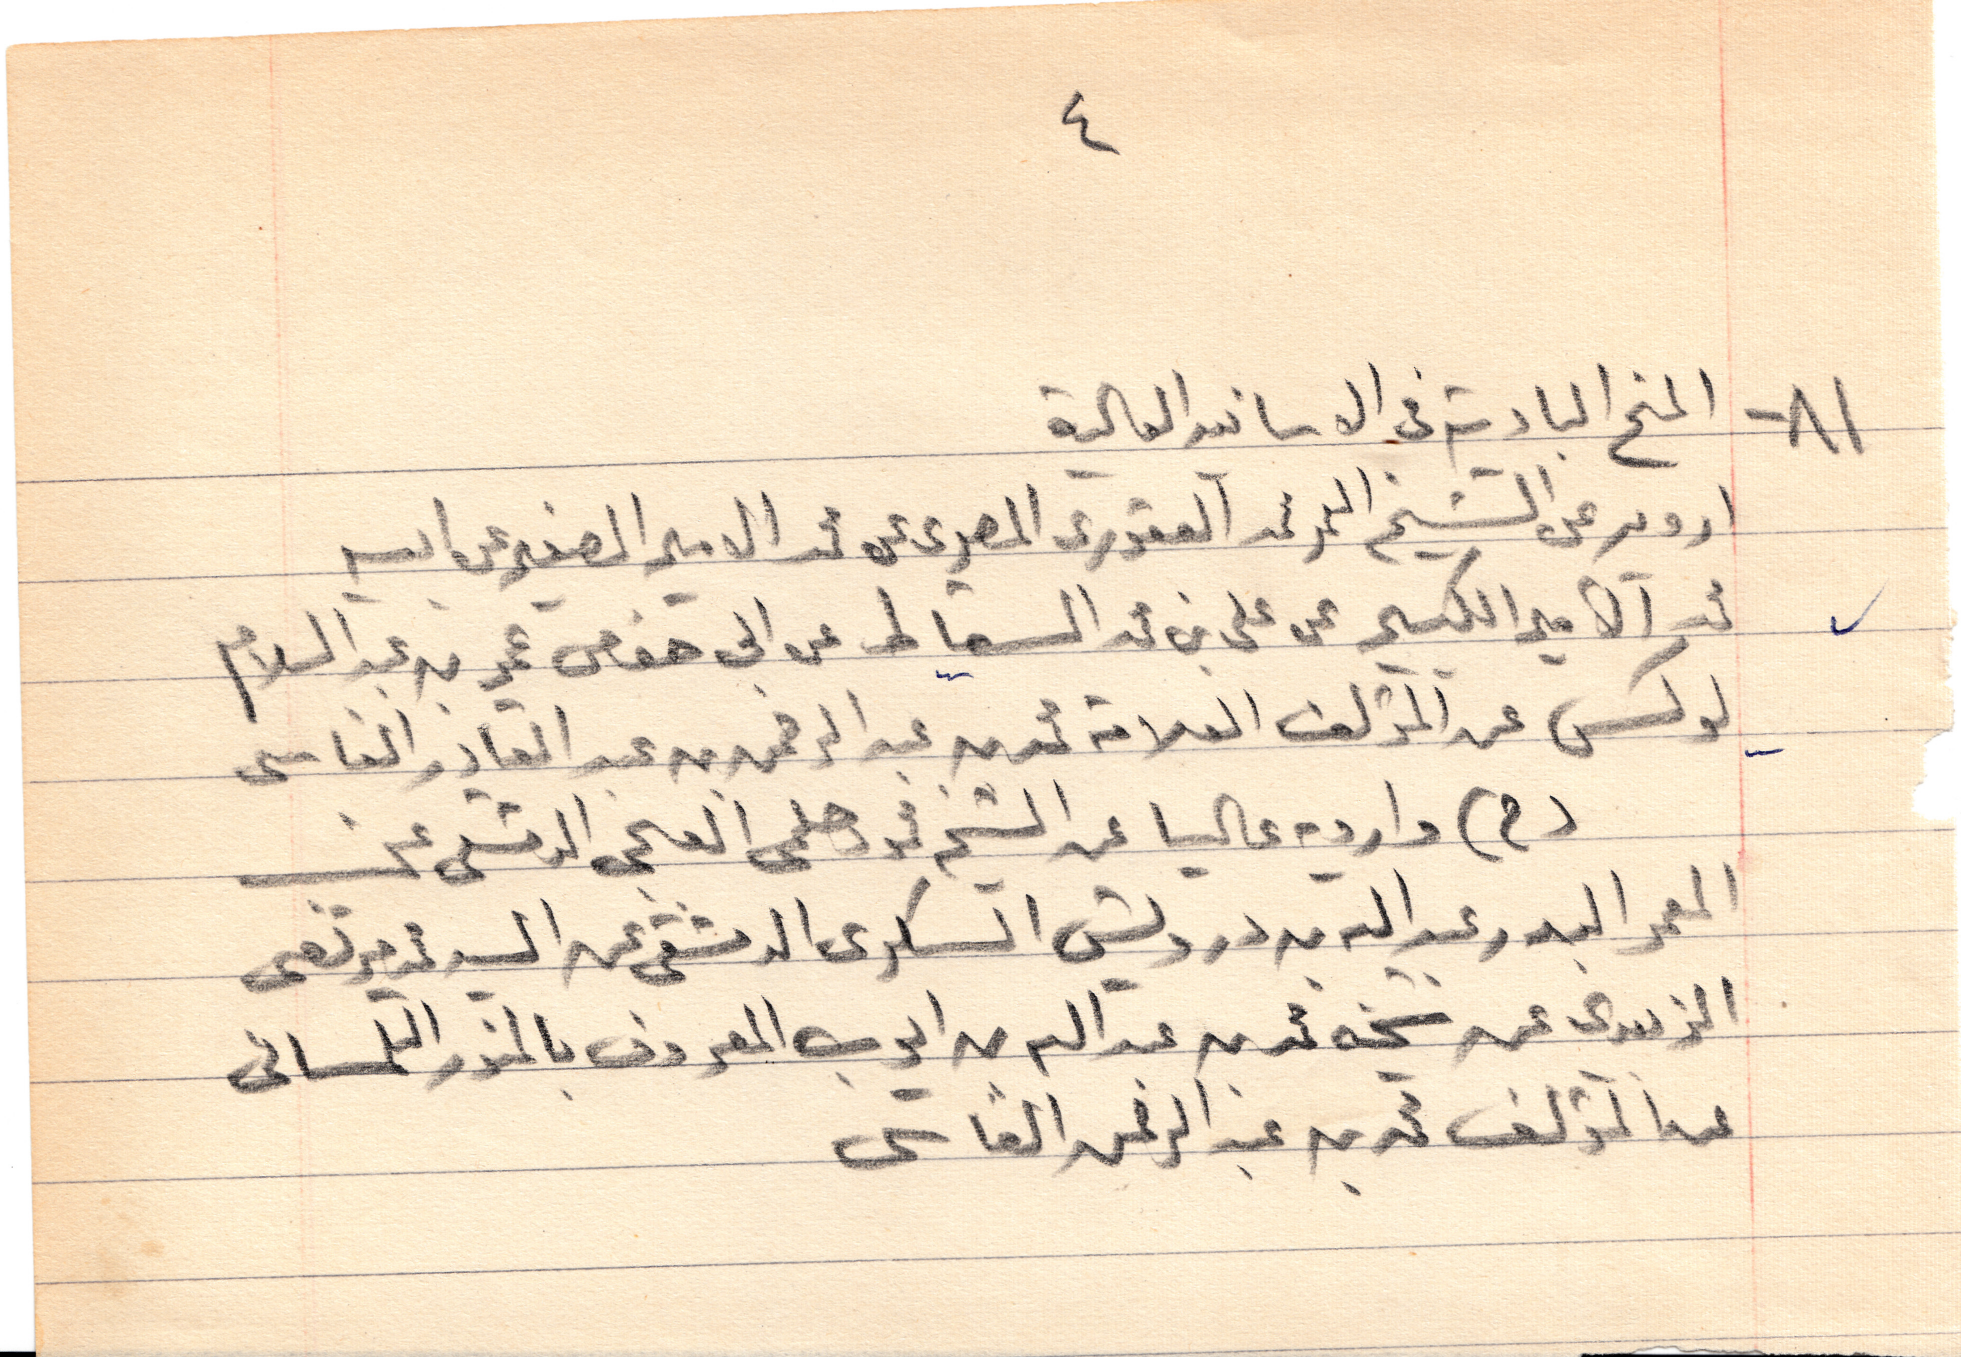 ٤
١٨- المنح البادية في الاسانيد العالية
ارويه عن الشيخ المعمر محمد العقوري المصري عن محمد الامير الصغير عن ابيه
محمد الامير الكبير عن علي بن محمد السقاط عن ابي حفص عمر بن عبد السلام
لوكس عن المؤلف العلامة محمد بن عبد الرحمن بن عبد القادر الفاسي
(ح) وارويه عاليا عن الشيخ محمود حلمي العجي الدمشقي عن
المعمر البدر عبد الله بن درويش السكري الدمشقي عن السيد محمد مرتضى
الزبيدي عن شيخه محمد بن عبد الله بن ايوب المعروف بالمنور التلمساني
عن المؤلف محمد بن عبد الرحمن الفاسي